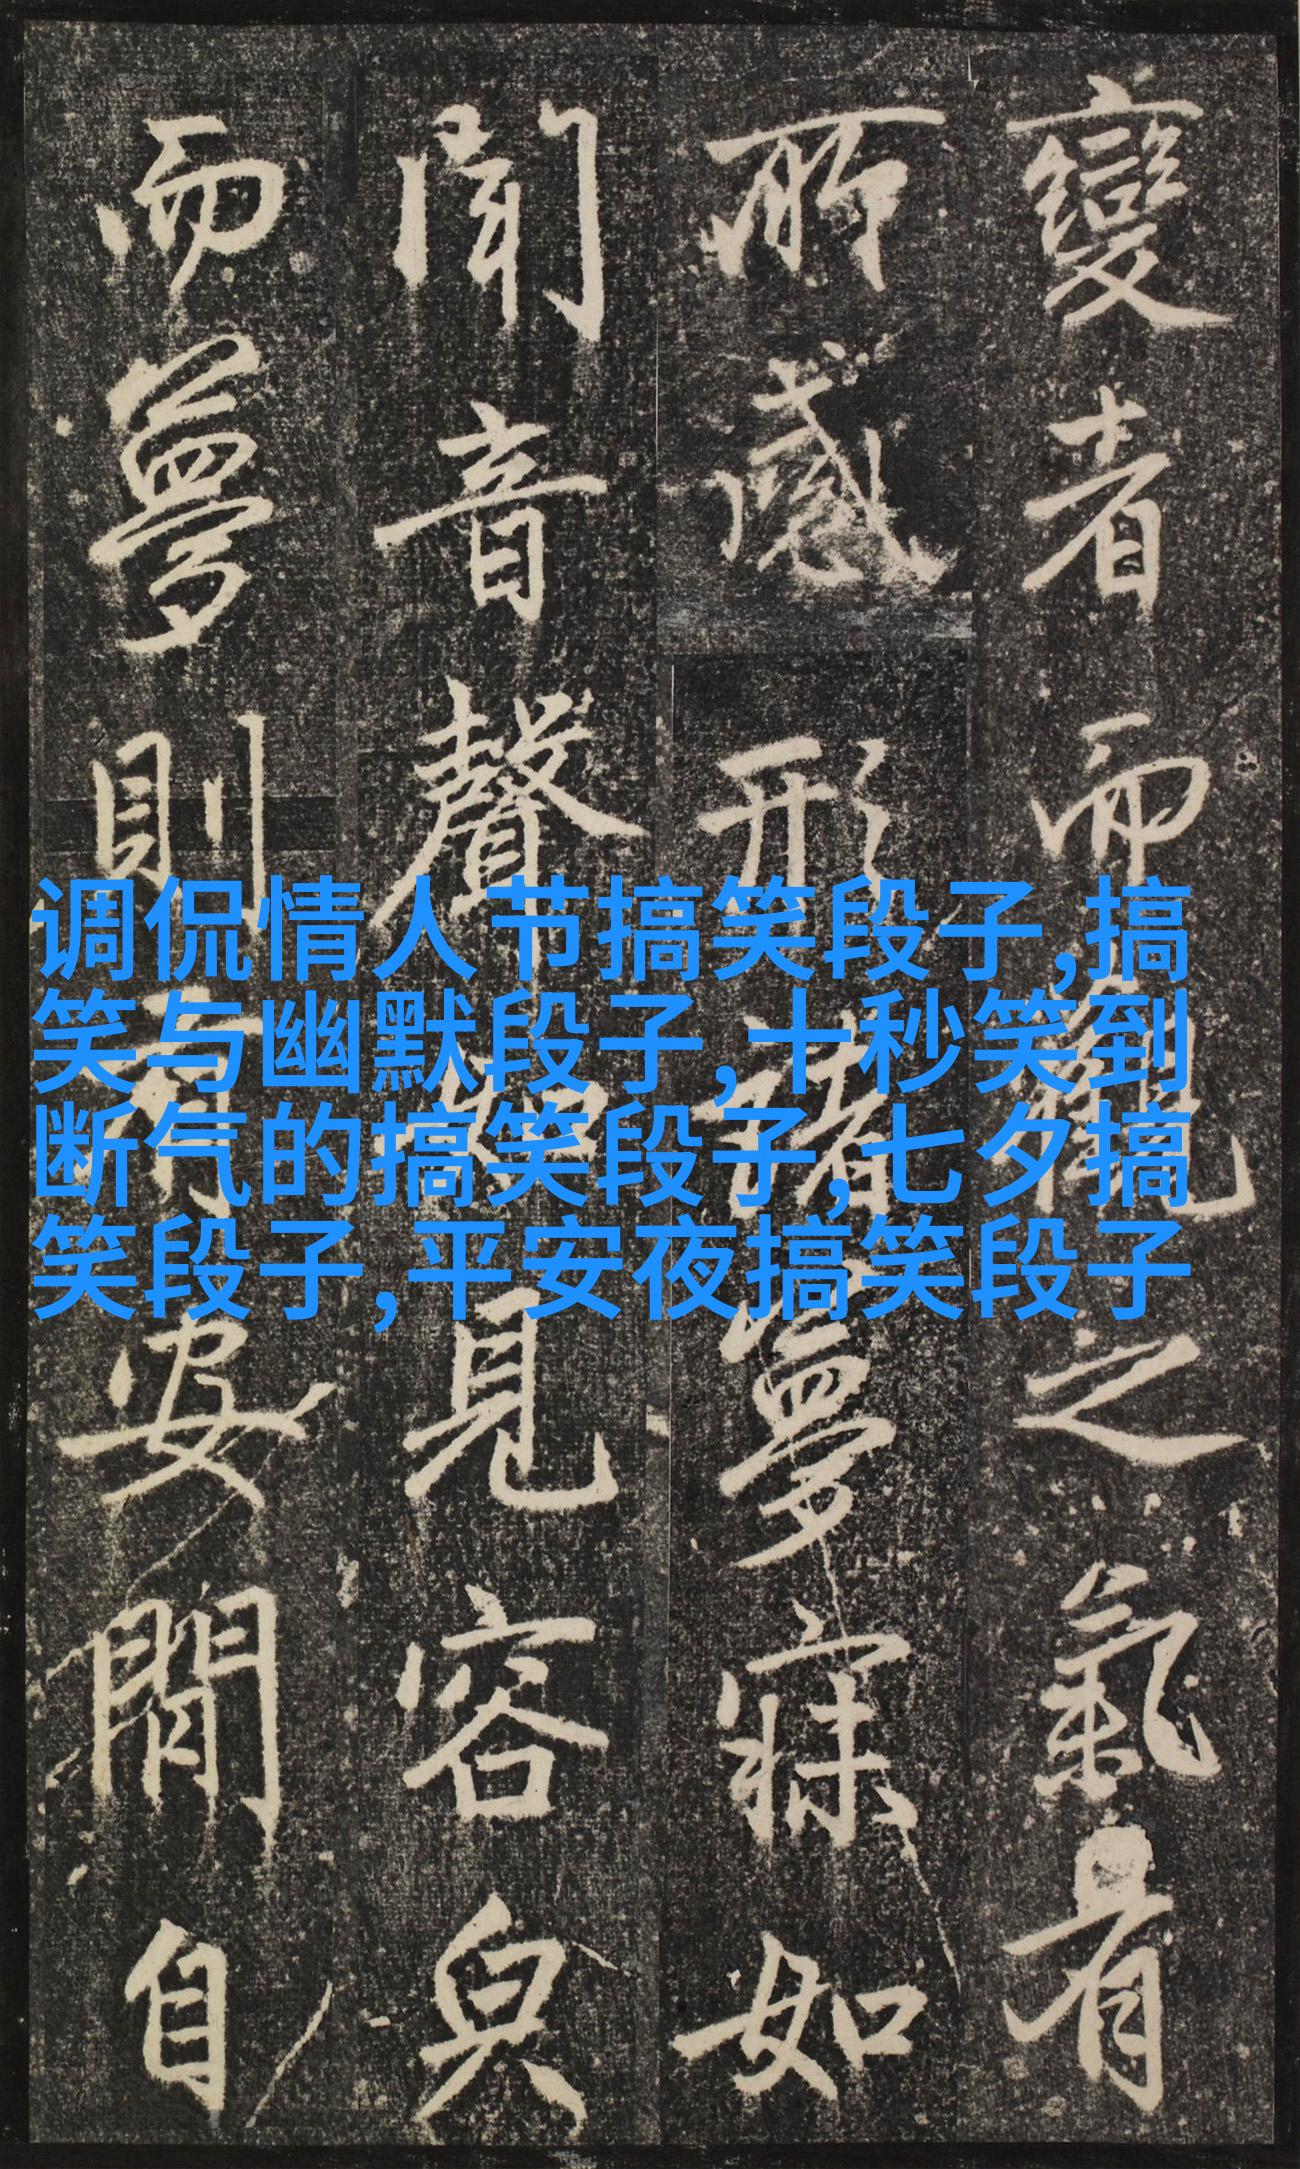 變者而觀之氣有
所感形諸夢寐如
聞音聲如見容皃
而夢則安閒自
调侃情人节搞笑段子,搞
笑与幽默段子,十秒笑到
断气的搞笑段子,七夕搞
笑段子,平安夜搞笑段子